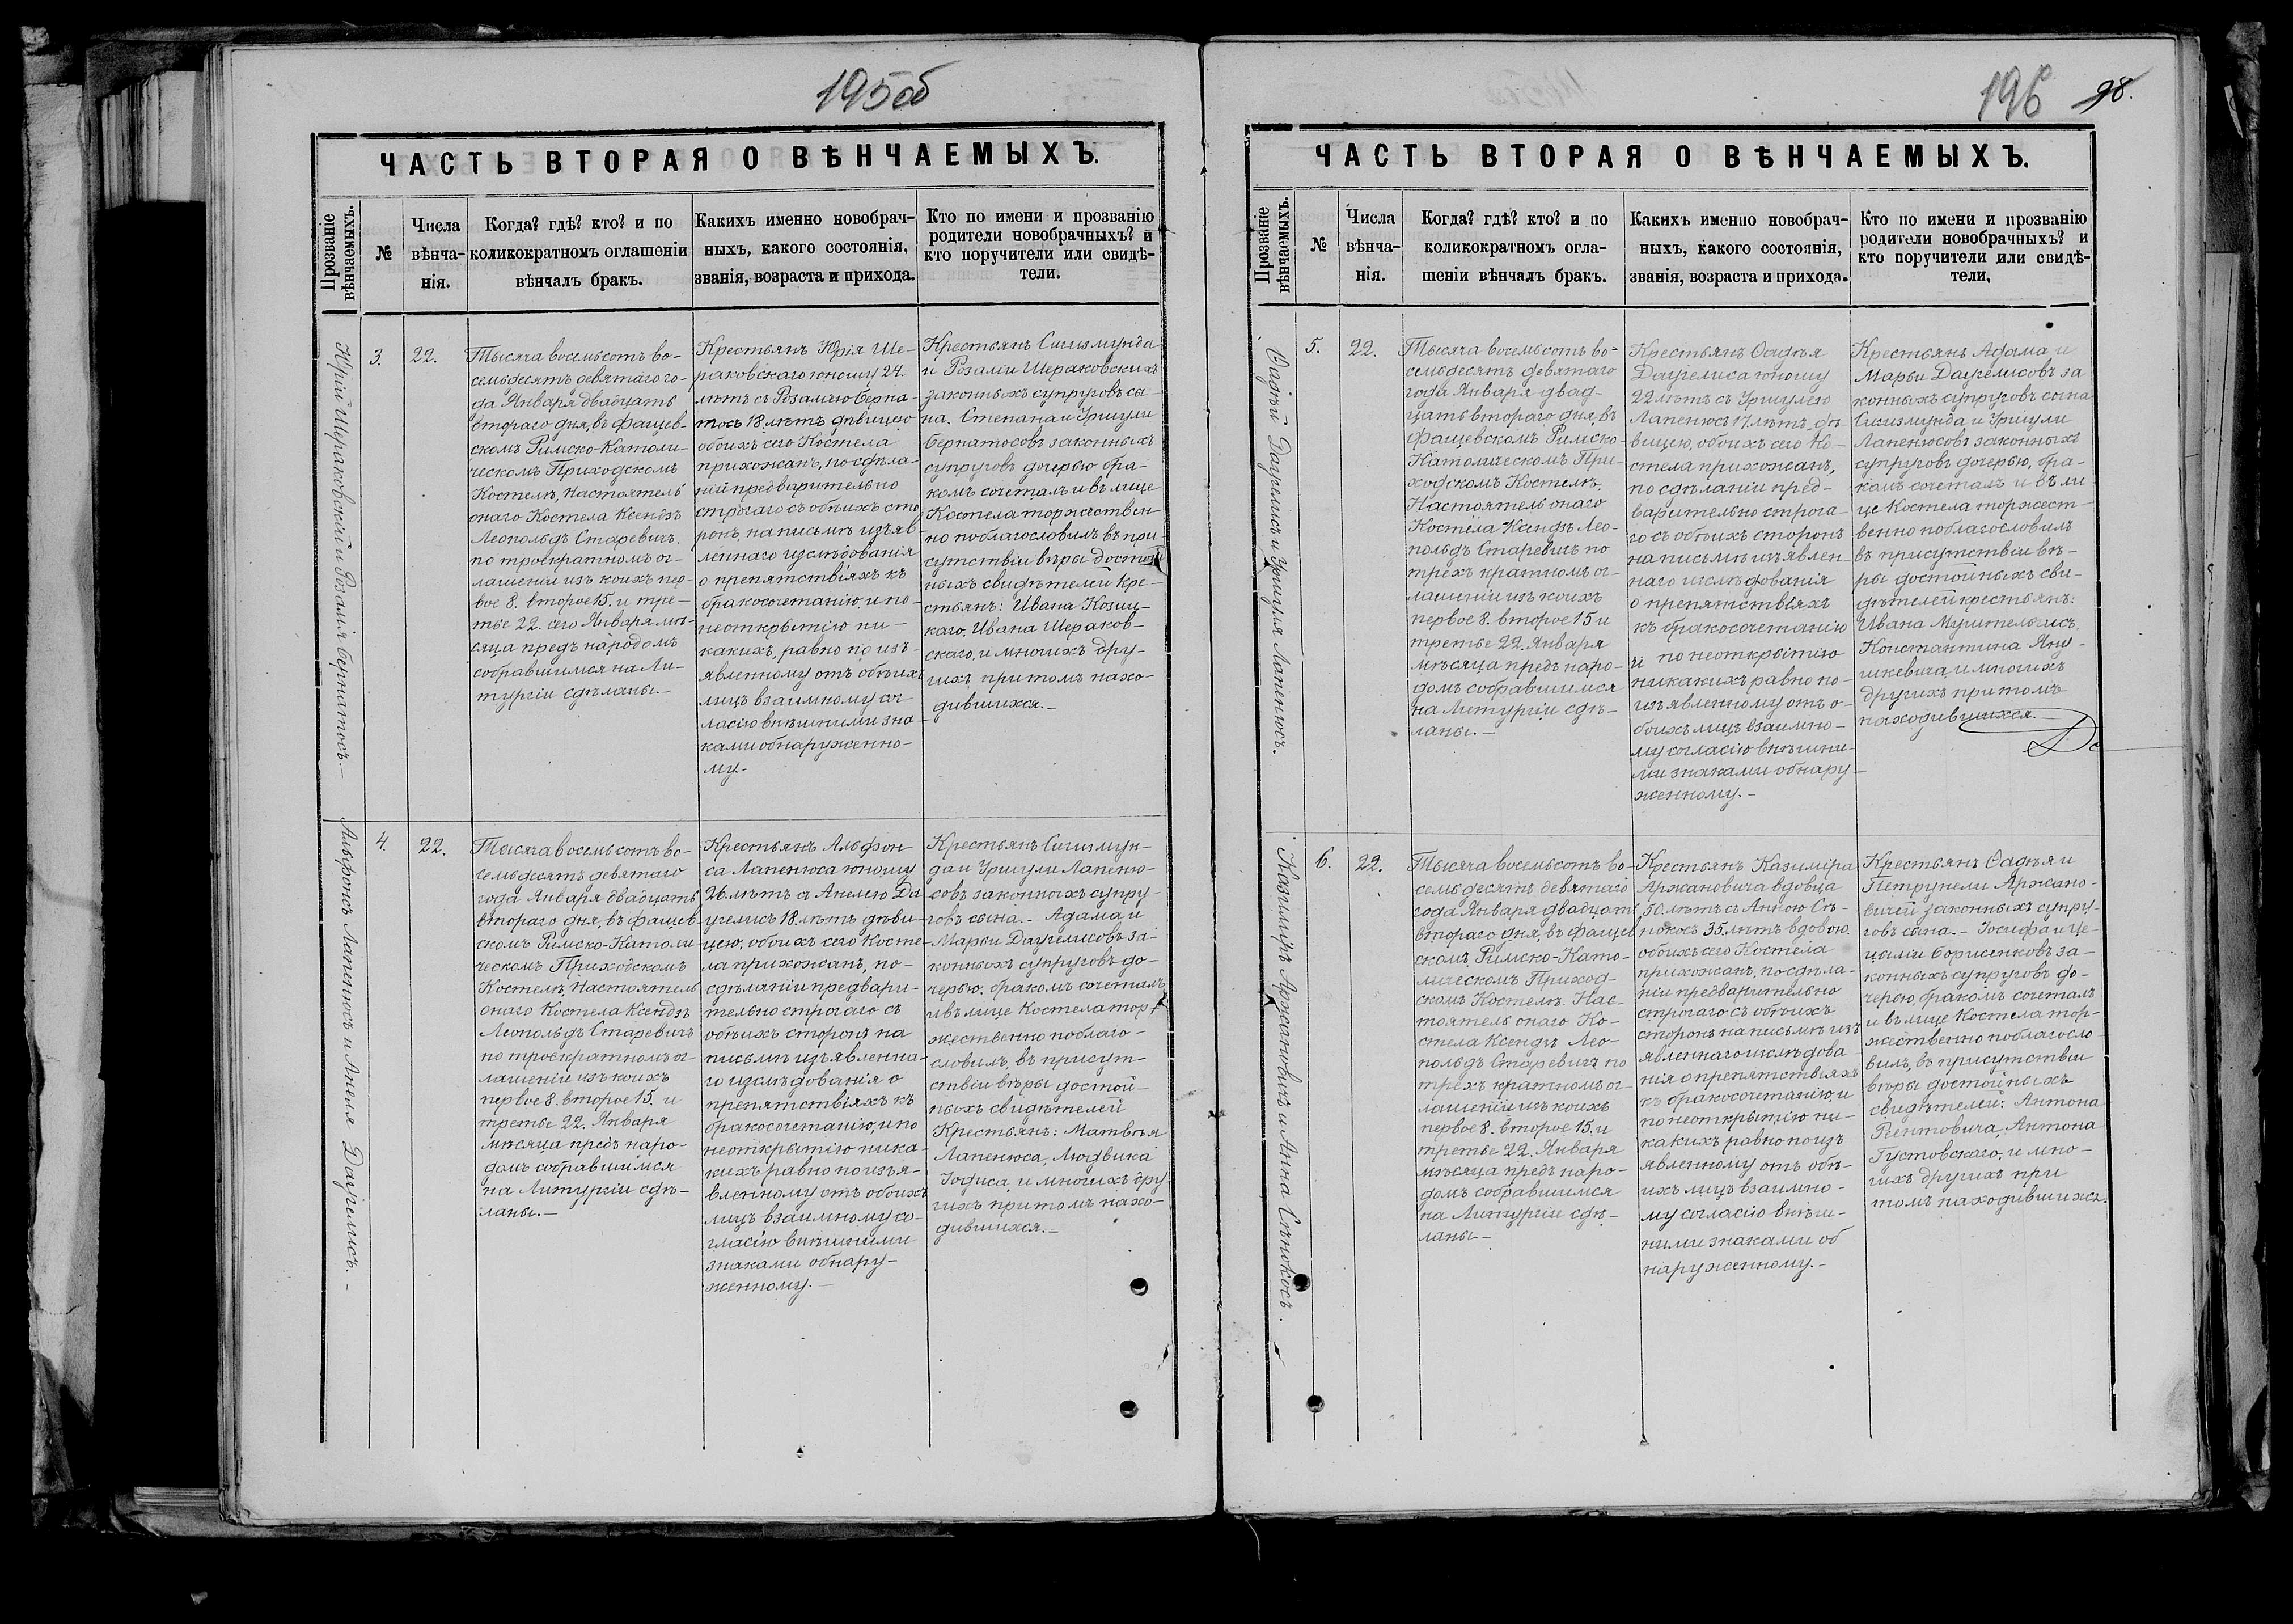 195об
ЧАСТЬ ВТОРАЯ О ВѢНЧАЕМЫХЪ.
Прозваніе
вѣнчаемыхъ.
№
Числа
вѣнча-
нія.
Когда? гдѣ? кто? и по
коликократномъ оглашеніи
вѣнчалъ бракъ.
Какихъ именно новобрач-
ныхъ, какого состоянія,
званія, возраста и прихода.
Кто по имени и прозванію
родители новобрачныхъ? и
кто поручители или свидѣ-
тели.
Юрій Шераковскій и Розалія Бернатосъ.—
3.
22.
Тысяча восемьсотъ во-
семьдесятъ девятаго го-
да Января двадцать
втораго дня, въ Фащев-
скомъ Римско-Католи-
ческомъ Приходскомъ
Костелѣ, Настоятель
онаго Костела Ксендзъ
Леопольдъ Старевичъ
по троекратномъ ог-
лашеніи изъ коихъ пер-
вое 8. второе 15. и тре-
тье 22. сего Января мѣ-
сяца предъ народомъ
собравшимся на Ли-
тургіи сдѣланы.—
Крестьянъ Юрія Ше-
раковскаго юношу 24.
лѣтъ съ Розаліею Берна-
тосъ 18 лѣтъ дѣвицею
обоихъ сего Костела
прихожанъ, по сдѣла-
ніи предварительно
строгаго съ обѣихъ сто
ронъ, на письмѣ изъяв
леннаго изслѣдованія
о препятствіяхъ къ
бракосочетанію, и по-
неоткрытію ни-
какихъ, равно по изъ-
явленному отъ обоихъ
лицъ взаимному со-
гласію внѣшними зна-
ками обнаруженно-
му.-
Крестьянъ Сигизмунда
и Розаліи Шераковскихъ
законныхъ супруговъ сы-
на. Степана и Уршули
Бернатосовъ законныхъ
супруговъ дочерью бра-
комъ сочеталъ и въ лице
Костела торжествен-
но поблагословилъ въ при-
сутствіи вѣры достой
ныхъ свидѣтелей Кре-
стьянъ: Ивана Козиц-
каго, Ивана Шераков-
скаго, и многихъ дру-
гихъ при томъ нахо-
дившихся.—
Альфонсъ Лапенюсъ и Анеля Даугелисъ.-
4.
22.
Тысяча восемьсотъ во-
семьдесятъ девятаго
года Января двадцать
втораго дня, въ Фащев
скомъ Римско-Католи
ческомъ Приходскомъ
Костелѣ, Настоятель
онаго Костела Ксендзъ
Леопольдъ Старевичъ
по троекратномъ ог-
лашеніи изъ коихъ
первое 8. второе 15. и
третье 22. Января
мѣсяца предъ наро-
домъ собравшимся
на Литургіи сдѣ-
ланы.—
Крестьянъ Альфон
са Лапенюса юношу
26 лѣтъ съ Анелею Да
угелисъ 18 лѣтъ дѣви-
цею, обоихъ сего Косте-
ла прихожанъ, по-
сдѣланіи предвари-
тельно строгаго съ
обѣихъ сторонъ на
письмѣ изъявленна-
го изслѣдованія о
препятствіяхъ къ
бракосочетанію, и по
неоткрытію ника-
кихъ равно по изъя-
вленному отъ обоихъ
лицъ взаимному со-
гласію внѣшними
знаками обнару-
женному.—
Крестьянъ Сигизмун-
да и Уршули Лапеню-
совъ законныхъ супру-
говъ сына.- Адама и
Марьи Даугелисовъ за-
конныхъ супруговъ до-
черью. бракомъ сочеталъ
и въ лице Костела тор-
жественно поблаго-
словилъ, въ присут-
ствіи вѣры достой-
ныхъ свидѣтелей
Крестьянъ: Матвѣя
Лапенюса, Людвика
Іодиса и многихъ дру
гихъ при томъ нахо-
дившихся.—
196 98.
ЧАСТЬ ВТОРАЯ О ВѢНЧАЕМЫХЪ.
Прозваніе
вѣнчаемыхъ.
№
Числа
вѣнча-
нія.
Когда? гдѣ? кто? и по
коликократномъ огла-
шеніи вѣнчалъ бракъ.
Какихъ именно новобрач-
ныхъ, какого состоянія,
званія, возраста и прихода.
Кто по имени и прозванію
родители новобрачныхъ? и
кто поручители или свидѣ-
тели.
Фадѣй Даугелисъ и Уршуля Лапенюсъ.
5.
22.
Тысяча восемьсотъ во-
семьдесятъ девятаго
года Января двад-
цать втораго дня, въ
Фащевскомъ Римско-
Католическомъ При-
ходскомъ Костелѣ,
Настоятель онаго
Костела Ксендзъ Лео-
польдъ Старевичъ по
трехъ кратномъ ог-
лашеніи изъ коихъ
первое 8. второе 15 и
третье 22. Января
мѣсяца предъ наро-
домъ собравшимся
на Литургіи сдѣ-
ланы.—
Крестьянъ Фадѣя
Даугелиса юношу
22 лѣтъ съ Уршулею
Лапенюсъ 17 лѣтъ дѣ-
вицею, обоихъ сего Ко-
стела прихожанъ,
по сдѣланіи пред-
варительно строга-
го съ обѣихъ сторонъ
на письмѣ изъявлен-
наго изслѣдованія
о препятствіяхъ
къ бракосочетанію
и по неоткрытію
никакихъ равно по-
изъявленному отъ о-
боихъ лицъ взаимно-
му согласію внѣшни-
ми знаками обнару-
женному.—
Крестьянъ Адама и
Марьи Даугелисовъ за
конныхъ супруговъ сына
Сигизмунда и Уршули
Лапенюсовъ законныхъ
супруговъ дочерью, бра-
комъ сочеталъ и въ ли
це Костела торжест-
венно поблагословилъ
въ присутствіи вѣ-
ры достойныхъ сви-
дѣтелей крестьянъ:
Ивана
Константина Яну-
шкевича, и многихъ
другихъ при томъ
находившихся.—
Казиміръ Аржановичъ и Анна Сѣнокосъ.
6.
22.
Тысяча восемьсотъ во-
семьдесятъ девятаго
года Января двадцать
втораго дня, въ Фащев
скомъ Римско-Като-
лическомъ Приход-
скомъ Костелѣ. Нас-
тоятель онаго Ко-
стела Ксендзъ Лео-
польдъ Старевичъ по
трехъ кратномъ ог-
лашеніи изъ коихъ
первое 8. второе 15. и
третье 22. Января
мѣсяца предъ наро-
домъ собравшимся
на Литургіи сдѣ-
ланы.—
Крестьянъ Казиміра
Аржановича вдовца
50 лѣтъ съ Анною Сѣ-
нокосъ 35 лѣтъ вдовою.
обоихъ сего Костела
прихожанъ, по сдѣла-
ніи предварительно
строгаго съ обоихъ
сторонъ на письмѣ изъ
явленнаго изслѣдова
нія о препятствіяхъ
къ бракосочетанію, и
по неоткрытію ни-
какихъ равно по изъ
явленному отъ обѣ-
ихъ лицъ взаимно-
му согласію внѣш-
ними знаками об
наруженному.—
Крестьянъ Фадѣя и
Петрунели Аржано-
вичей законныхъ супру-
говъ сына.- Іосифа и Це-
циліи Борисенковъ за-
конныхъ супруговъ до-
черью, бракомъ сочеталъ
и въ лице Костела тор-
жественно поблагосло
вилъ, въ присутствіи
вѣры достойныхъ
свидѣтелей: Антона
Рентовича, Антона
Густовскаго, и мно-
гихъ другихъ при
томъ находившихся.